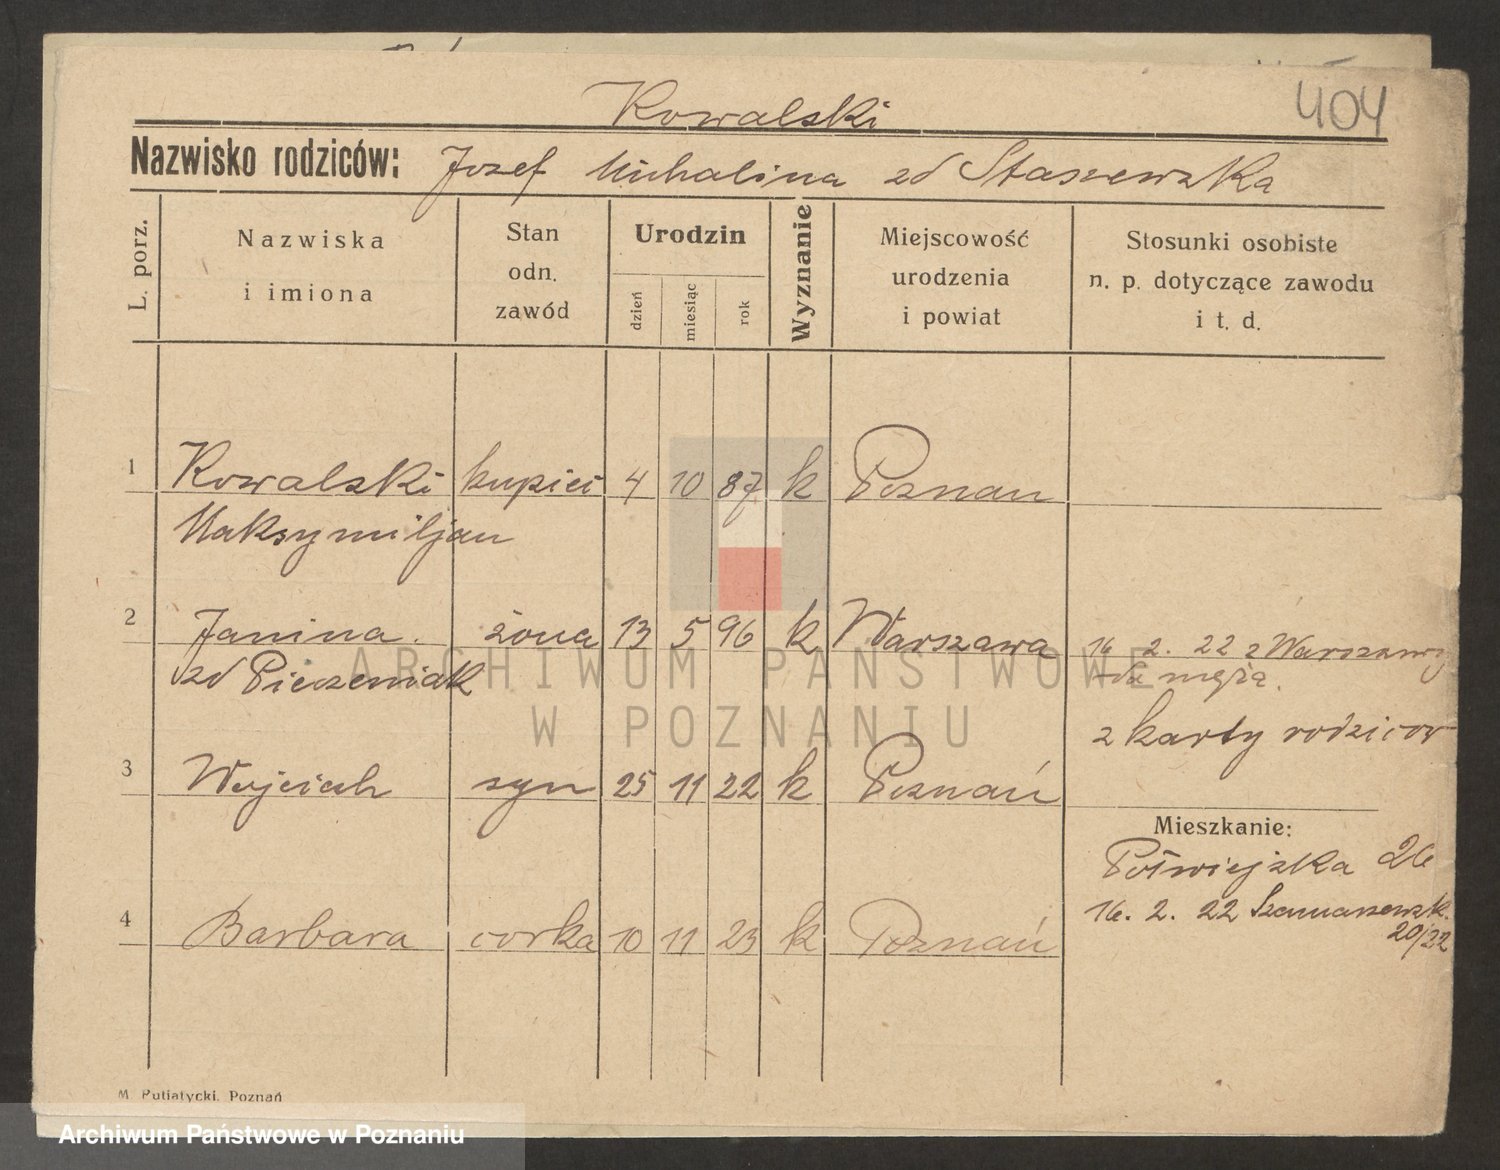 404
Kowalski
Nazwisko rodziców: Jozef Michalina zd Staszewska
L. porz.
Nazwiska
i imiona
Stan
odn.
zawód
Urodzin
dzień
miesiąc
rok
Wyznanie
Miejscowość
urodzenia
i powiat
Stosunki osobiste
n. p. dotyczące zawodu
i t. d.
1 Kowalski kupiec 4 10 87 k Poznan
Maksymiljan
2 Janina żona 13 5 96 k Warszawa 16 2. 22 z Warszawy
zd Pieczeniak do męża.
z karty rodzicow
3 Wojciech syn 25 11 22 k Poznań
Mieszkanie:
Półwiejska 26
4 Barbara corka 10 11 23 k Poznań 16. 2. 22 Szamarzewsk.
20/22
M Putiatycki. Poznań
ARCHIWUM PAŃSTWOWE
W POZNANIU
Archiwum Państwowe w Poznaniu